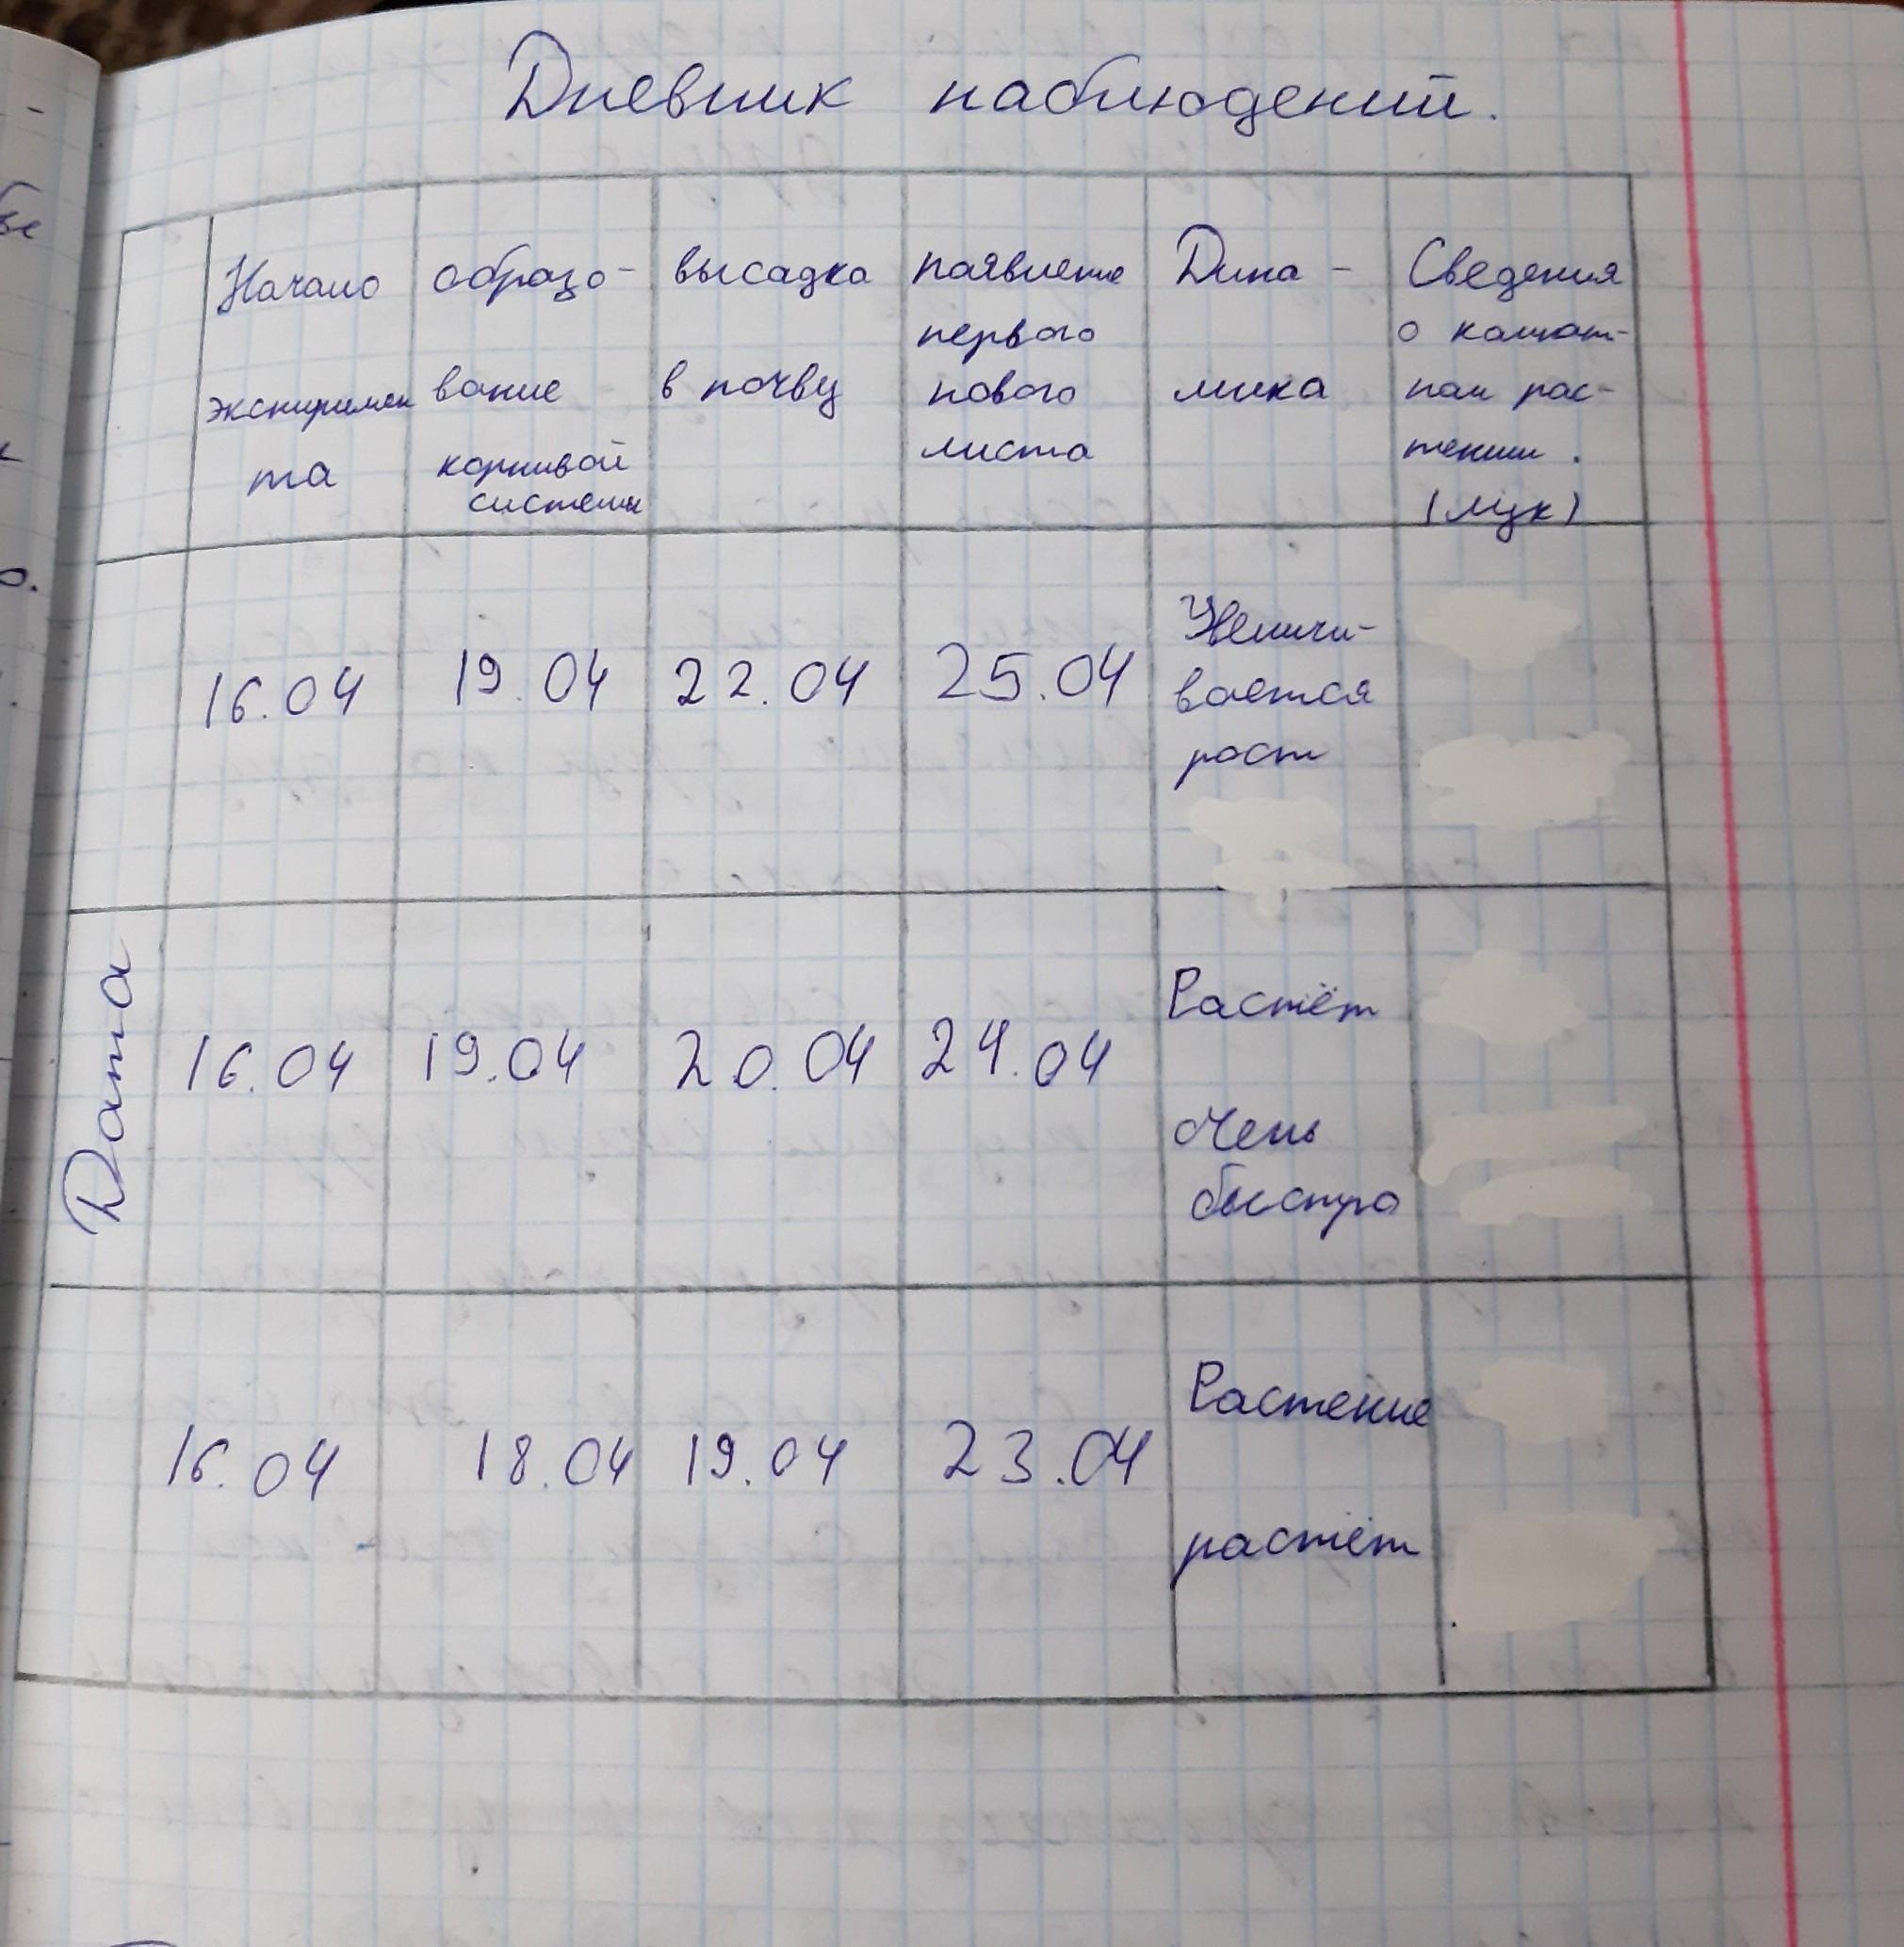 Дневник наблюдений.
Начало
эксперимен
та
образо-
вание
корнивой
системы
высадка
в почву
паявление
первого
нового
листа
Дина-
мика
Сведения
о комнат-
ном рас-
тении.
(лук)
Дата
16.04 19.04 22.04 25.04
Увеличи-
вается
рост
16.04 19.04 20.04 24.04
Растёт
очень
быстро
16.04 18.04 19.04 23.04
Растение
растёт